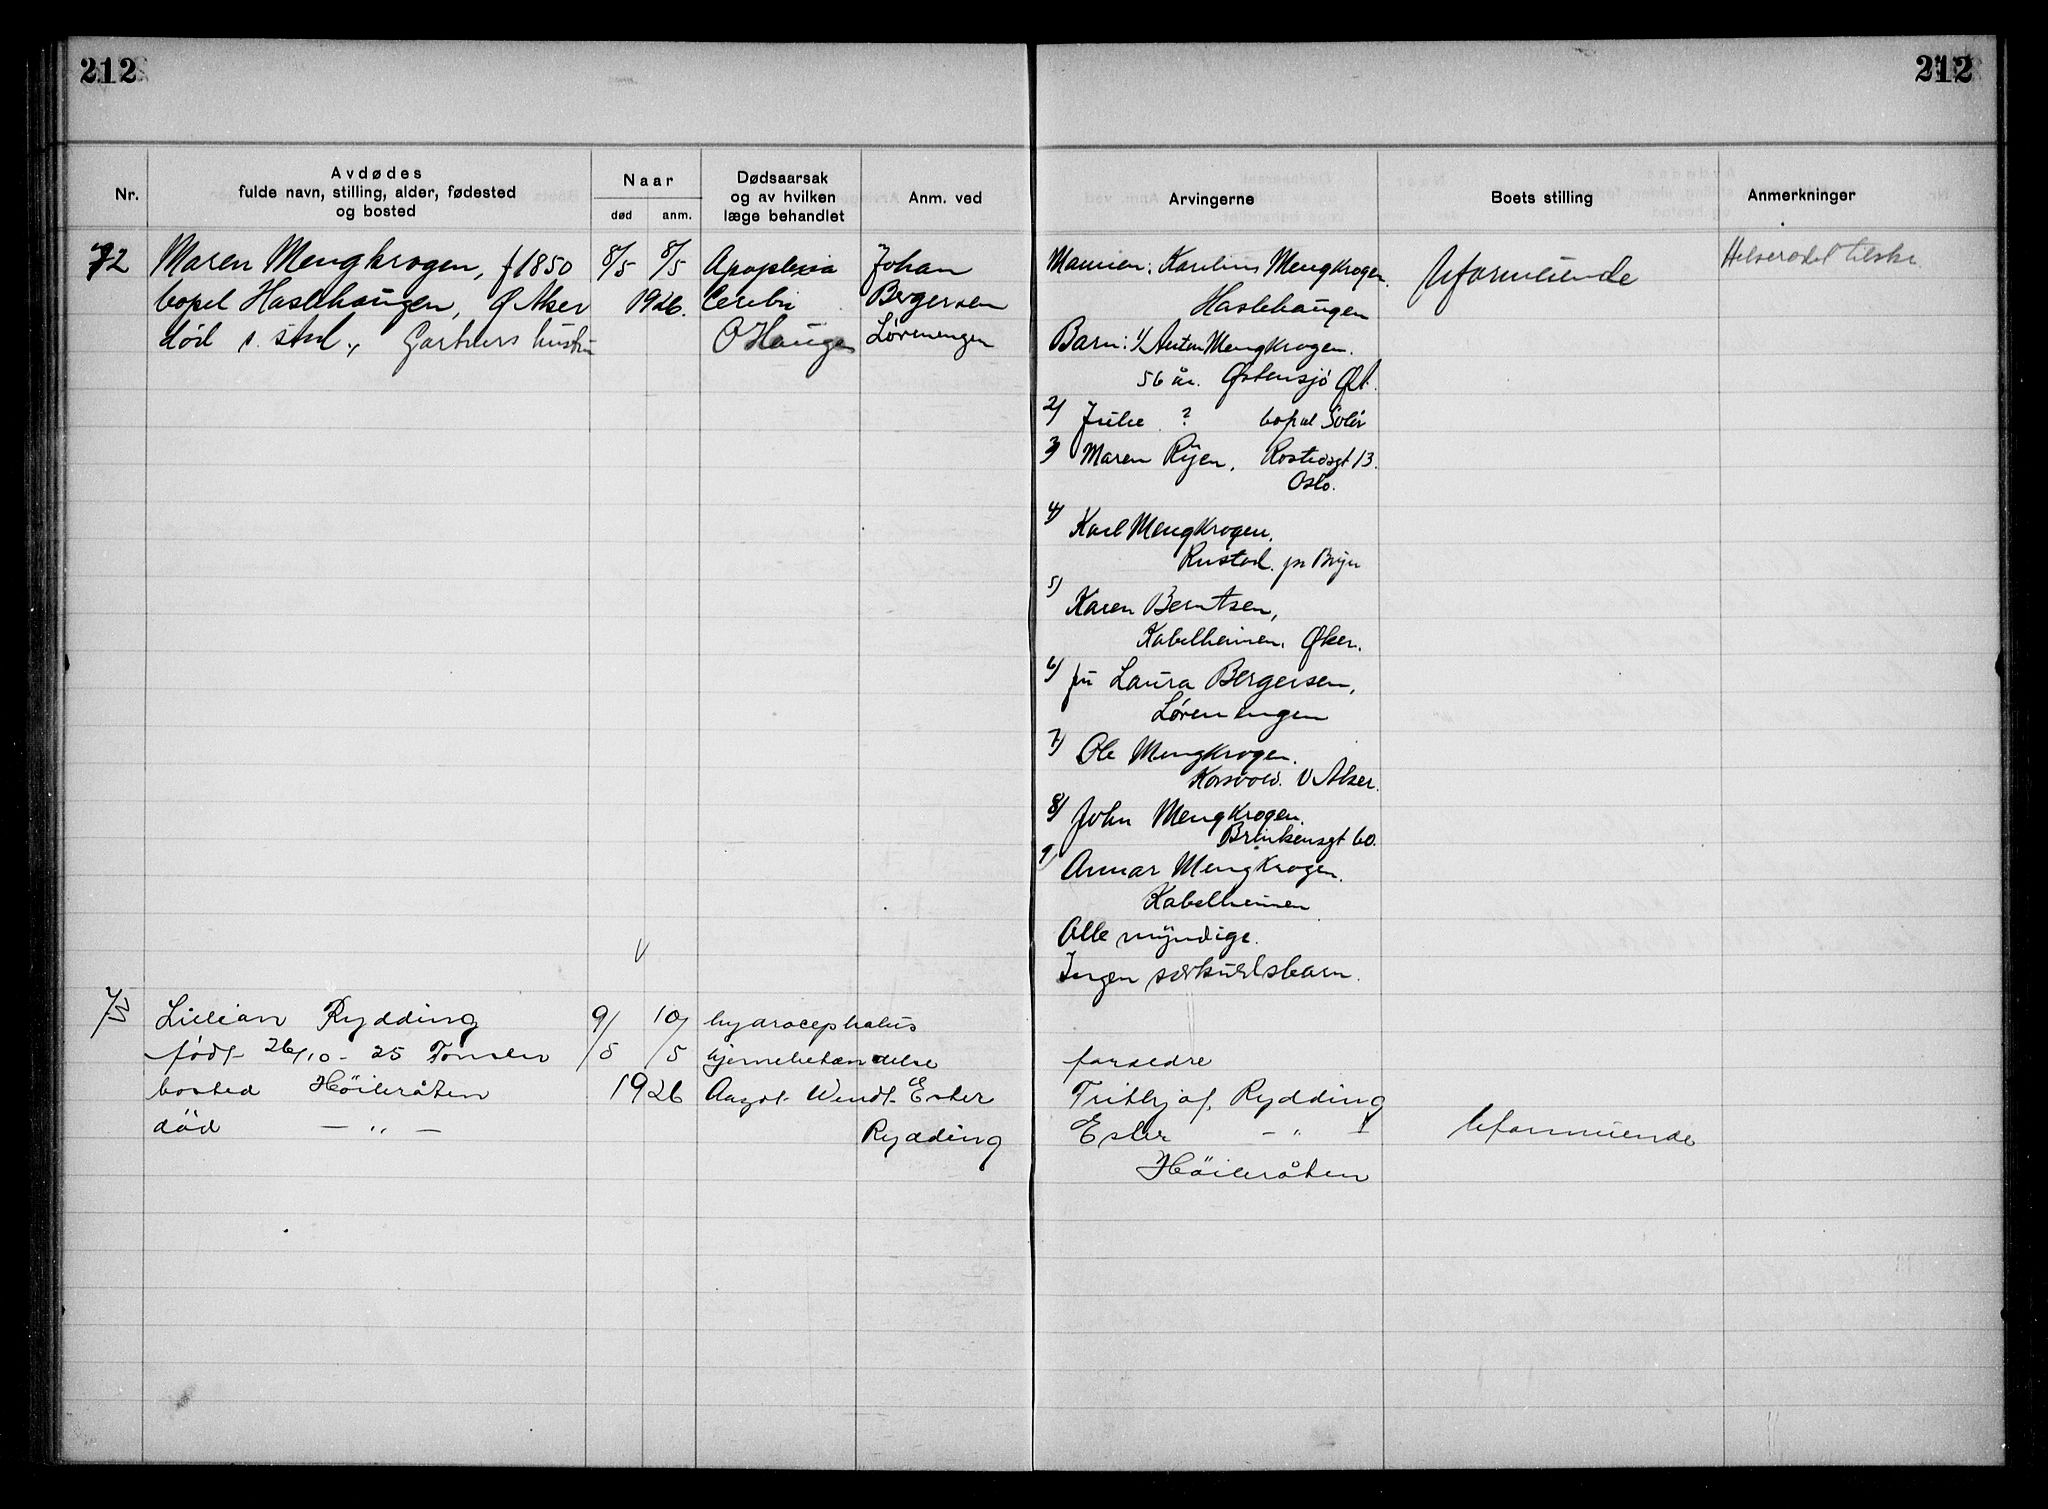 212
212
Nr.
Avdødes
fulde navn, stilling, alder, fødested
og bosted
Naar
død
anm.
Dødsaarsak
og av hvilken
læge behandlet
Anm. ved
Arvingerne
Boets stilling
Anmerkninger
72
Maren Mengkrogen, f 1850
bopel Haslehaugen, Ø Aker
død s. sted.
8/5 8/5
1926.
Apoplexia
Cerebri
O Haugen
Johan
Bergersen
Lørenengen
Mannen: Karelius Mengkrogen.
Haslehaugen
Barn: 1/ Anton Mengkrogen.
56 år. Østensjø
2/ Julie ? bopel Solør
3/ Maren Ryen, 13.
Oslo.
4/ Karl Mengkrogen.
Rustad. pr Bryn
5/ Karen Berntsen,
Kabelheimen. Øker.
6/ fru Laura Bergersen,
Lørenengen
7/ Ole Mengkrogen.
Korsvold. V Aker.
8/ John Mengkrogen.
Brinkensgt 60.
9/ Annar Mengkrogen.
Kabelheimen
Alle myndige.
Ingen særkuldsbarn.
Uformuende
Helserådet
Lillian Rydding
født 26/10 - 25 Tonsen
bosted Höibråten
død — „ —
9/5 10/5
1926
hydrocephalus
hjernebetændelse
Wendt
Ester
Rydding
forældre
Frithjof Rydding
Ester — „ —
Höibråten
Uformuende